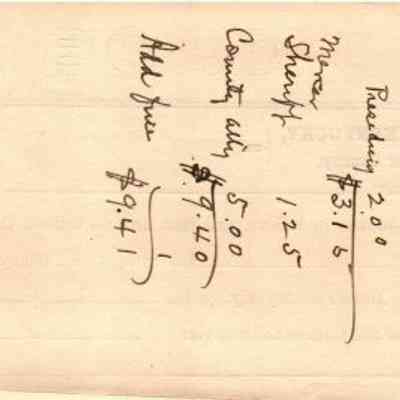 Presiding 2.00
$3.15
Mercer
Sheriff 1.25
County atty 5.00
$9.40
1
Add fine $9.41